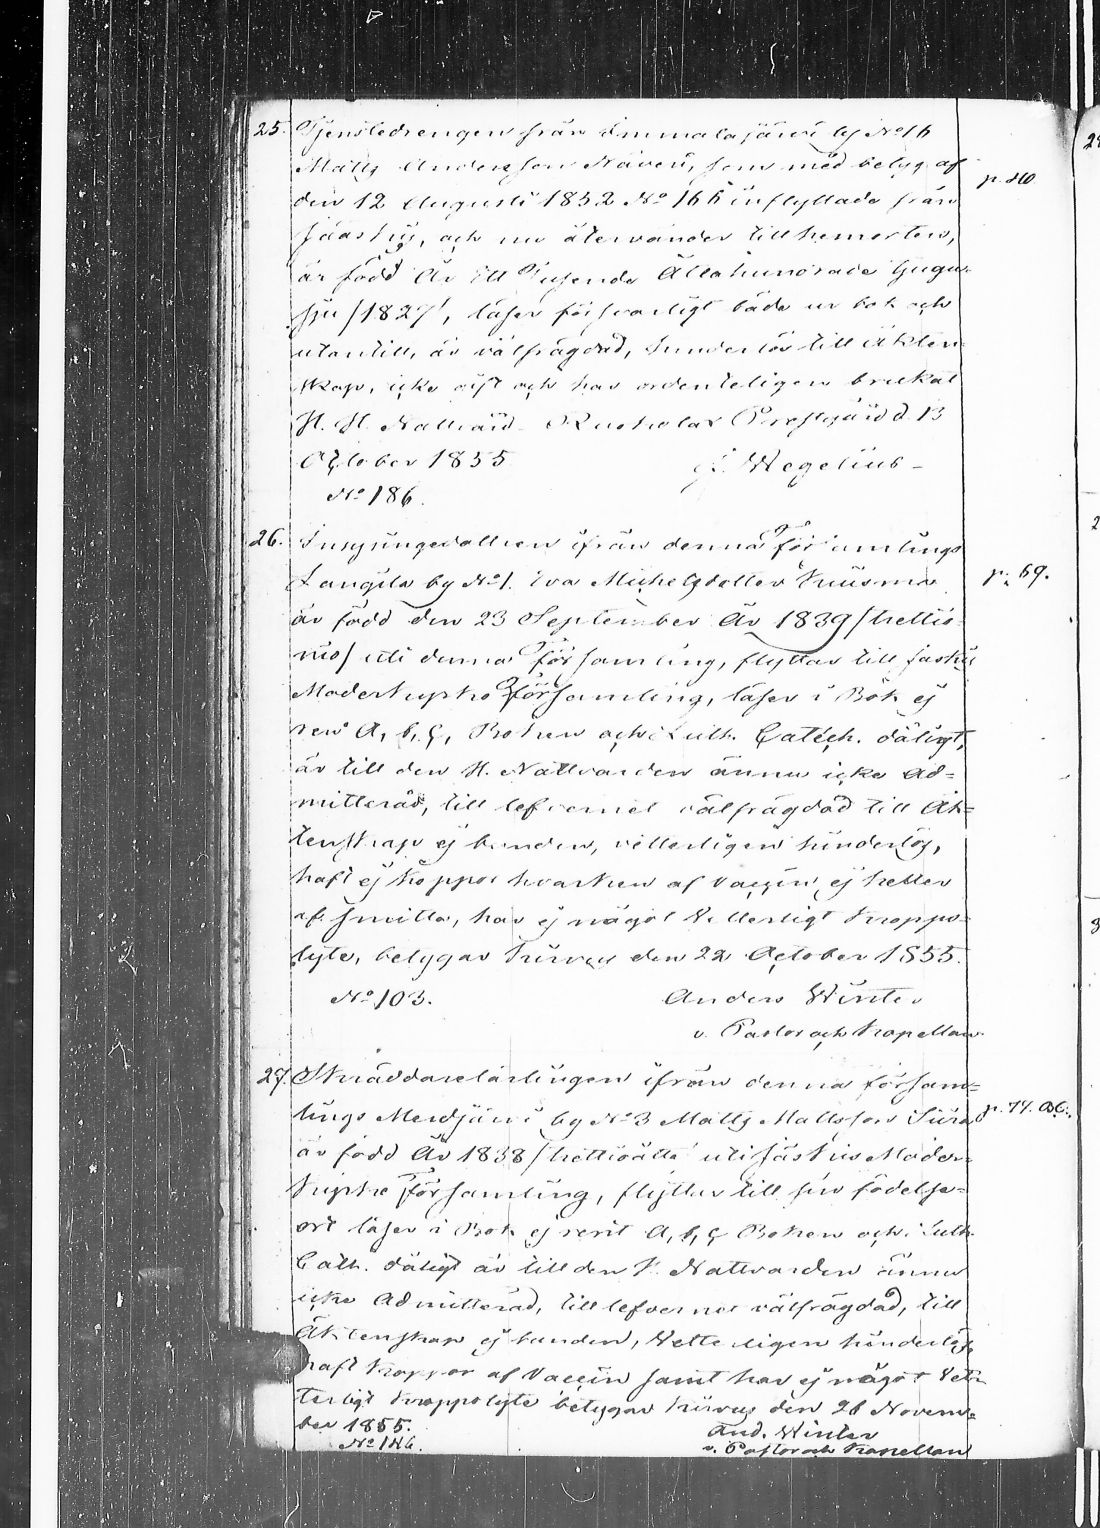 25. Tjenstedrengen från Immolajärvi by No 16
Matts Andersson Näveri, som med betyg af
p. 210
den 12 Augusti 1852 No 166 inflyttade från
Jäaskis, och nu återvänder till hemorten,
är född År Ett Tusende Åttahundrade tjugu-
sju /1827/, läser försvarligt både ur bok och
utantill, är välfrägdad, hinderlös till äkten-
skap, icke gift och har ordenteligen brukat
H. H. Nattvard. Ruokolax Prestgård d. 13
October 1855. Wegelius
No 186.
26. Inhysingedottren ifrån denna församlings
Langila by No 1. Eva Michelsdotter Kuisma
p. 69.
är född den 23 September År 1839 /trettio-
nio/ uti denna församling, flyttar till Jäskis
Moderkyrko församling, läser i Bok ej
rent A, b, c, Boken och i Luth. Catech. dåligt,
är till den H. Nattvarden ännu icke Ad-
mitterad, till lefvernet välfrägdad till Äk-
tenskap ej bunden, vitterligen hinderlös,
haft ej koppor hvarken af Vaccin ej heller
af Smitta, har ej något Vetterligt kropps-
lyte, betygar Kirvus den 22 October 1855.
No 103. Anders Winter
v. Pastor och Kapellan
27. Skräddarelärlingen ifrån denna försam-
lings Merdjärvi by No 3 Matts Mattsson
p. 77.
är född År 1838 /trettioåtta/ uti Jäskis Moder-
kyrko församling, flyttar till sin födelse-
ort läser i Bok ej rent A, b, c Boken och i Luth.
Cath. dåligt är till den H. Nattvarden ännu
icke Admitterad, till lefvernet välfrägdad, till
Äktenskap ej bunden, Vetterligen hinderlös,
haft koppor af Vaccin samt har ej något Vet-
terligt kroppslyte betygar Kirvus den 26 Novem-
ber 1855. And. Winter
No 146. v. Pastor och Kapellan